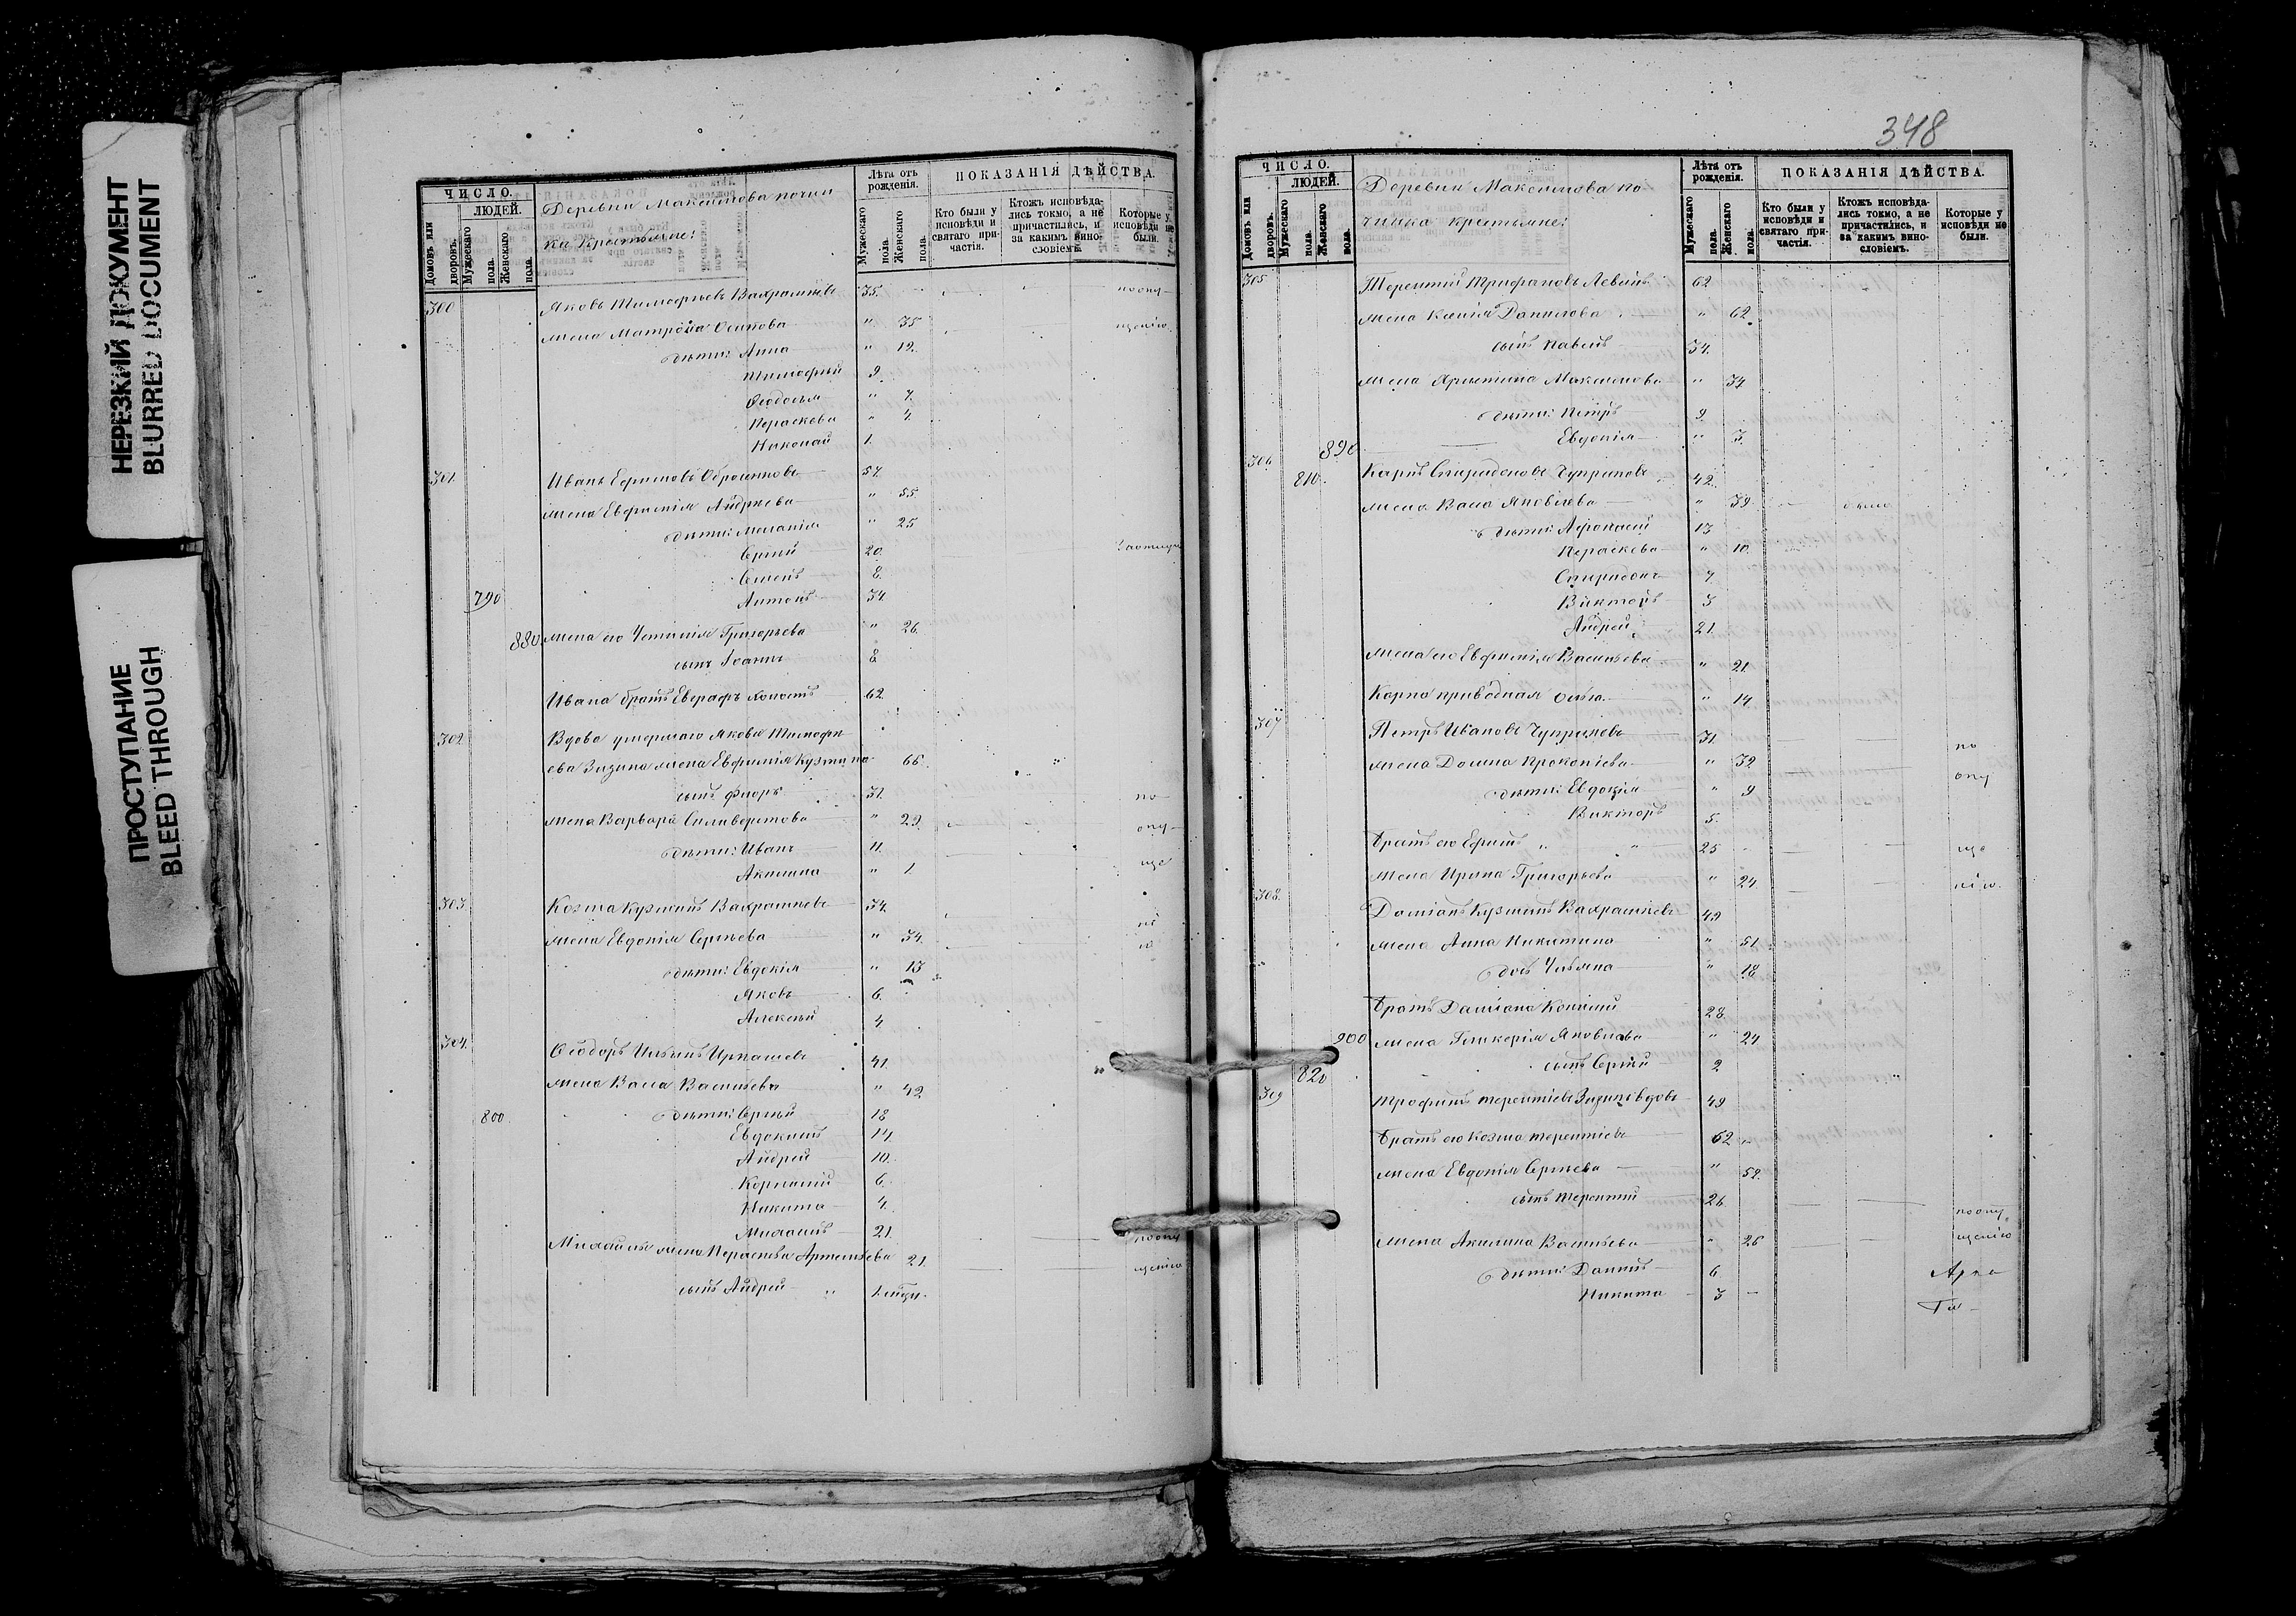 НЕРЕЗКИЙ ДОКУМЕНТ
BLURRED DOCUMENT
ПРОСТУПАНИЕ
BLEED THROUGH
ЧИСЛО.
ЛЮДЕЙ.
Домовъ или дворовъ.
Мужескаго пола.
Женскаго пола.
Деревни Максимова почин
ка Крестьяне:
Лѣта отъ рожденія.
Мужескаго пола.
Женскаго пола.
ПОКАЗАНІЯ ДѢЙСТВА.
Кто были у исповѣди и святаго причастія.
Ктожъ исповѣдались токмо, а не причастились, и за какимъ винословіемъ.
Которые у исповѣди не были.
300 Яковъ Тимофѣевъ Вахрамѣевъ 35. поопу
жена Матрона Осипова " 35 щенію
дѣти: Анна " 12.
Тимофѣй 9.
Ѳеодосья " 7.
Параскева " 4
Николай 1.
301. Иванъ Ефимовъ 57.
жена Евфимія Андреева " 55
дѣти: Меланія " 25
Сергій 20.
Семенъ 8.
790 Антонъ 34.
880 жена его Григорьева " 26.
сынъ Іоаннъ 8.
Ивана братъ холостъ 62.
302. Вдова умершаго Якова Тимофе
ева Зизина жена Евфимія Кузмина 66.
сынъ Флоръ 31. по
жена Варвара Силиверстова " 29. опу
дѣти: Иванъ 11. ще
Акилина " 1.
303. Козма Кузминъ Вахрамѣевъ 34. ні
жена Евдокія Сергѣева " 34. ю
дѣти: Евдокія " 13
Яковъ 6.
Алексѣй 4
304. Ѳеодоръ Ильинъ 41.
жена Васса Васильева " 42
800. дѣти: Сергѣй 18
Евдокимъ 14
Андрей 10.
Корнилій 6.
Никита 4.
Михаилъ 21.
Михаила жена Параскева Артемьева 21. поопу
щенію
сынъ Андрей " 1
348
ЧИСЛО.
ЛЮДЕЙ.
Домовъ или дворовъ.
Мужескаго пола.
Женскаго пола.
Деревни Максимова по
чинка крестьяне:
Лѣта отъ рожденія.
Мужескаго пола.
Женскаго пола.
ПОКАЗАНІЯ ДѢЙСТВА.
Кто были у исповѣди и святаго причастія.
Ктожъ исповѣдались токмо, а не причастились, и за какимъ винословіемъ.
Которые у исповѣди не были.
305 Терентій Трифановъ 62
жена Ксенія Данилова " 62.
сынъ Павелъ 34.
жена Христина Максимова " 34
дѣти: Петръ 9
890 Евдокія " 3.
306 810. Карпъ Спиридоновъ Чуприновъ 42.
жена Васса Яковлева " 39
дѣти: Афонасій 13
Параскева " 10.
Спиридонъ 7
Викторъ 3
Андрей 21.
жена его Евфимія Васильева " 21
Карпа приводная " 14
307 Петръ Ивановъ Чуприновъ 31.
жена Домна Прокопіева " 32 по
дѣти: Евдокія " 9 опу
Викторъ 5.
Братъ его Ефимъ " " 25 ще
жена Ирина Григорьева " 24. нію.
308. Даміанъ Кузминъ Вахрамѣевъ 49
жена Анна Никитина " 51.
дочь Ульяна " 18
Братъ Даміана 28.
900 жена Гликерія Яковлева " 24
820 сынъ Сергій 2
309 Трофимъ Терентіевъ Зизинъ вдовъ 49
Братъ его Козма Терентіевъ 62
жена Евдокія Сергѣева " 52.
сынъ Терентій 26. поопу
жена Акилина Васильева " 26 щенію
дѣти: Даніилъ 6.
Никита 3